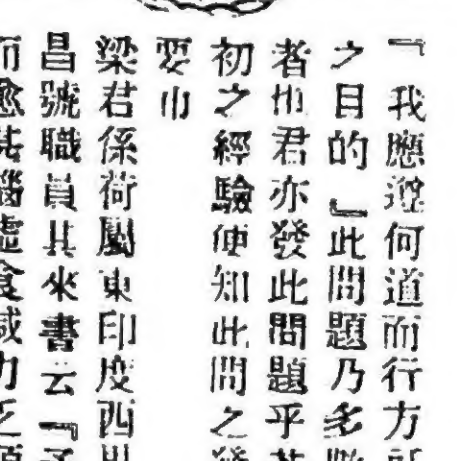 『我應遵何道而行方
之目的』此問題乃多
者也君亦發此問題乎
初之經驗便知此問之發
要也
梁君係荷屬東印度西
昌號職員其來書云『
而愈甚腦虛食減力乏